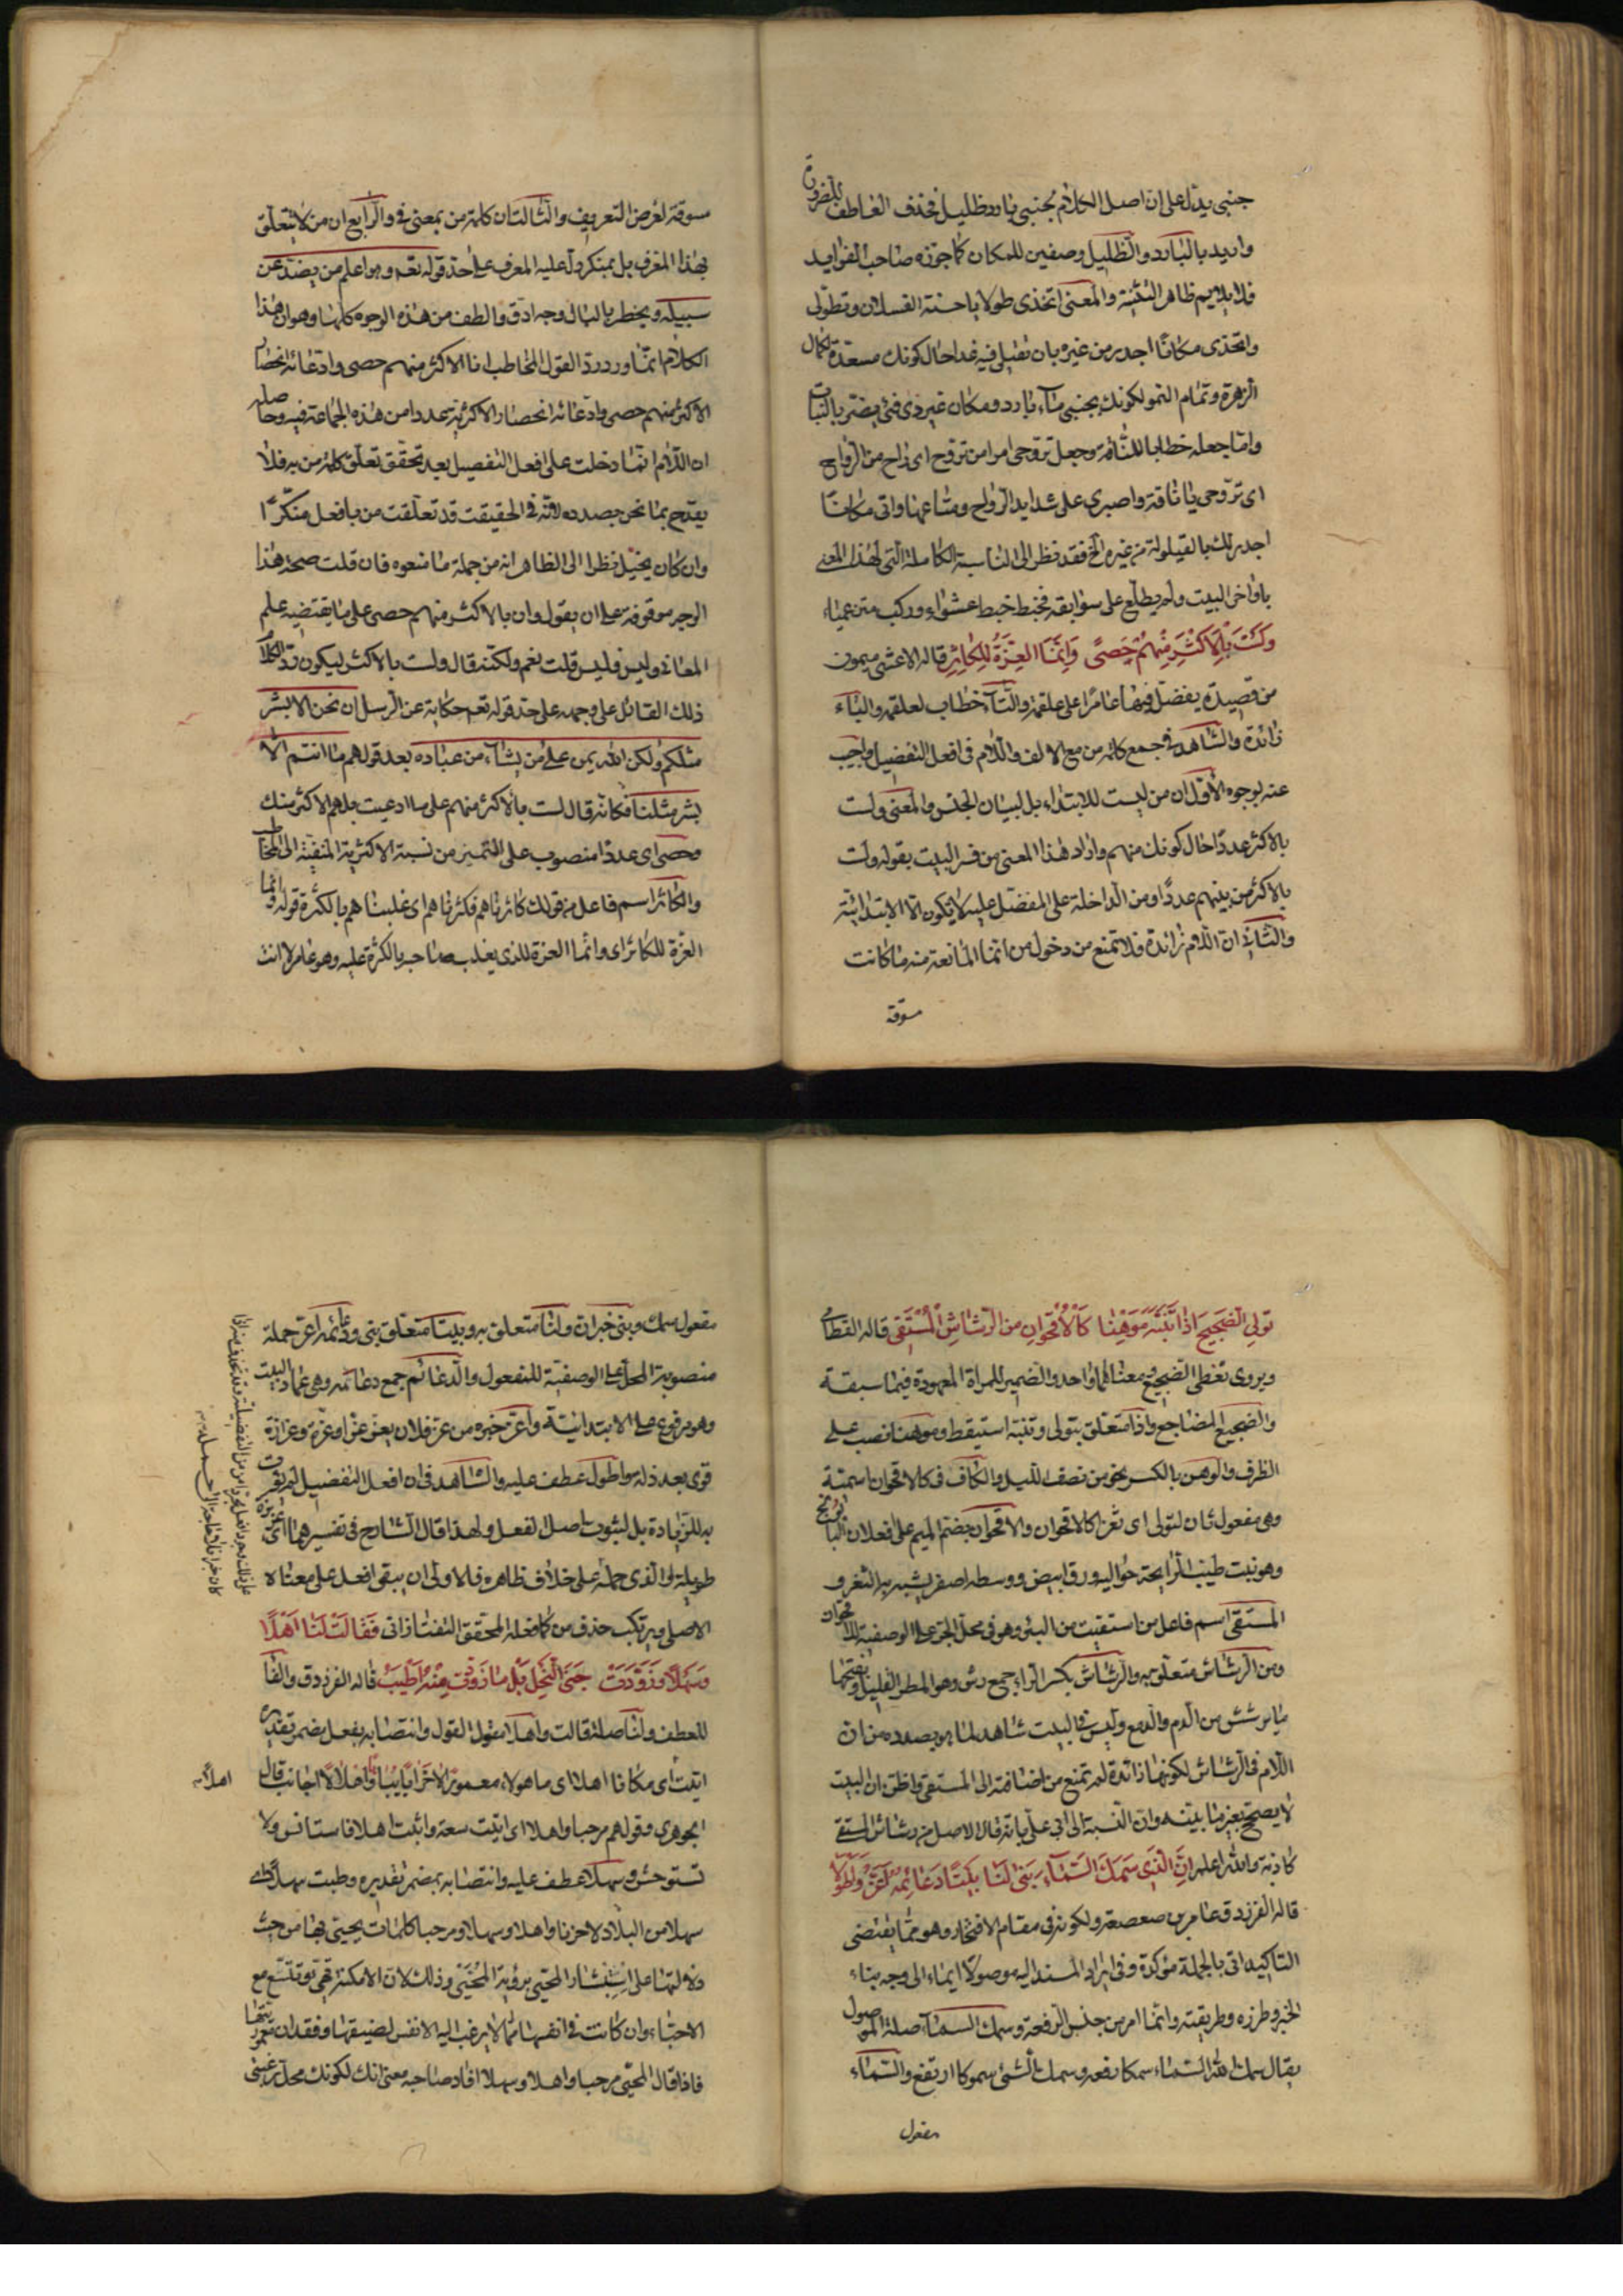 جنبى يدل على ان اصل الكلام بجنبى بارد ظليل فحذف العاطف للضرورة
واريد بالبارد والظليل وصفين للمكان كما جوزه صاحب الفرايد
فلا يلايم ظاهر التثنية والمعنى اتخذى طولا يا حسنة الفسلان وتطولى
واتخذى مكانا اجدر من غيره بان تقيلى فيه غدا حال كونك مستعدة لكمال
الزهرة وتمام النمو لكونك بجنبى ماء بارد ومكان غير ذى فئ يضر بالنبات
وامّا جعله خطابا للناقة وجعل تروحى امرا من تروح اى راح من الرواح
اى تروحى يا ناقة واصبرى على شدايد الرواح ومتاعبها واتى مكانا
اجدر لك بالقيلولة من غيره الخ فقد نظر الى المناسبة الكاملة التى لهذا المعنى
باواخر البيت ولم يطلع على سوابقه فخبط خبط عشواء وركب متن عمياء
وَلَسْتَ بِالْاَكْثَرِ مِنْهُمْ حَصًى وَاِنَّمَا الْعِزَّةُ لِلْكَاثِرِ قاله الاعشى ميمون
من قصيدة يفضل فيها عامرا على علقمة والتاء خطاب لعلقمة والباء
زائدة والشاهد فى جمع كلمة من مع الالف واللام فى افعل التفضيل واجيب
عنه بوجوه الاول ان من ليست للابتداء بل لبيان الجنس والمعنى ولست
بالاكثر عددا حال كونك منهم واراد هذا المعنى من فسر البيت بقوله ولست
بالاكثر من بينهم عددا ومن الداخلة على المفضل عليه لا يكون الا الابتدائية
والثانى ان اللام زائدة فلا تمنع من دخول من انما المانعة منه ما كانت
مسوقة
مسوقة لغرض التعريف والثالث ان كلمة من بمعنى فى والرابع ان من لا يتعلق
بهذا المعرف بل بمنكر دل عليه المعرف على حد قوله تعه وهو اعلم من يضل عن
سبيله ويخطر بالبال وجه ادق والطف من هذه الوجوه كلها وهو ان هذا
الكلام انما ورد رد القول المخاطب انا الاكثر منهم حصى وادعائه انحصار
الاكثر منهم حصى وادعائه انحصار الاكثرية عددا من هذه الجماعة فيه وحاصله
ان اللام انما دخلت على افعل التفضيل بعد تحقق تعلق كلمة من به فلا
يقدح بما نحن بصدده لانه فى الحقيقت قد تعلقت من بافعل منكرا
وان كان يخيل نظرا الى الظاهر انه من جملة ما منعوه فان قلت صحة هذا
الوجه موقوفة على ان يقول وان بالاكثر منهم حصى على ما يقتضيه علم
المعانى وليس فليس قلت نعم ولكنه قال ولست بالاكثر ليكون رد الكلام
ذلك القائل على وجهه على حد قوله تعه حكاية عن الرسل ان نحن الا بشر
مثلكم ولكن الله يمن على من يشاء من عباده بعد قولهم ما انتم الا
بشر مثلنا فكانه قال لست بالاكثر منهم على ما ادعيت بل هم الاكثر منك
وحصى اى عددا منصوب على التميز من نسبة الاكثرية المنفية الى المخاطب
والكاثر اسم فاعل من قولك كاثرناهم فكثرناهم اى غلبناهم بالكثرة قوله وانما
العزة للكاثر اى وانما العزة للذى يغلب صاحبه بالكثرة عليه وهو عامر لا انت
تولى الضجيع اذا تنبه موهنا كالاقحوان من الرشاش المستقى قاله القطامى
ويروى تغطى الضجيع ومعناهما واحد والضمير للمراة المعهودة فيما سبقه
والضجيع المضاجع واذا متعلق بتولى وتنبه استيقظ وموهنا نصب على
الظرف والوهن بالكسر نحو من نصف الليل والكاف فى كالاقحوان اسمية
وهى مفعول ثان لتولى اى ثغرا كالاقحوان والاقحوان بضم الميم على افعلان البابونج
وهو نبت طيب الرايحة حواليه ورق ابيض ووسطه اصفر يشبه به الثغر و
المستقى اسم فاعل من استقيت من البئر وهو فى محل الجر على الوصفية للاقحوان
ومن الرشاش متعلق به والرشاش بكسر الراء جمع رش وهو المطر القليل وبفتحها
ما يرشش من الدم والدمع وليس فى البيت شاهد لما هو بصدده من ان
اللام فى الرشاش لكونها زائدة لم تمنع من اضافته الى المستقى واظن ان البيت
لا يصح بغير ما بينه وان النسبة الى ابى على بانه قال الاصل من رشاش المستقى
كاذبة والله اعلم اِنَّ الَّذِى سَمَكَ السَّمَاءَ بَنٰى لَنَا بَيْتًا دَعَائِمُهُ اَعَزُّ وَاَطْوَلُ
قاله الفرزدق عامر بن صعصعة ولكونه فى مقام الافتخار وهو مما يقتضى
التاكيد اتى بالجملة مؤكدة وفى ايراد المسند اليه موصولا ايماء الى وجه بناء
الخبر وطرزه وطريقته وانما امر من جنس الرفعة وسمك السماء صلة الموصول
يقال سمك الله السماء سمكا رفعه وسمك الشئ سموكا ارتفع والسماء
مفعول
مفعول سمك وبنى خبر ان ولنا متعلق به وبيتا متعلق ببنى ودعائمه اعز جملة
منصوبة المحل على الوصفية للمفعول والدعائم جمع دعامه وهى عماد البيت
وهو مرفوع على الابتدائية واعز خبره من عز فلان يعز عزا وعزة وعزازة
قوى بعد ذله واطول عطف عليه والشاهد فى ان افعل التفضيل لم يؤت
به للزيادة بل لثبوت اصل الفعل ولهذا قال الشارح فى تفسيرهما اى عزيزة
طويلة والذى حمله على خلاف ظاهره فالاولى ان يبقى افعل على معناه
الاصلى ويرتكب حذف من كما فعله المحقق التفتازانى فَقَالَتْ لَنَا اَهْلًا
وَسَهْلًا وَزَوَّدَتْ جَنَى النَّحْلِ بَلْ مَا زَوَّدَتْ مِنْهُ اَطْيَبُ قاله الفرزدق والفا
للعطف ولنا صلة قالت واهلا مقول القول وانتصابه بفعل يضمر تقديره
اتيت اى مكانا اهلا اى ماهولا معمورا لا خرابا يبابا واهلا لا اجانب قال
الجوهرى وقولهم مرحبا واهلا اى اتيت سعة واتيت اهلا فاستانس ولا
تستوحش وسهلا عطف عليه وانتصابه بمضمر تقديره وطيت سهلا اى
سهلا من البلاد لا حزنا واهلا وسهلا ومرحبا كلمات يحيى بها من حيث
دلالتها على استبشار المحيى برؤية المحيى وذلك لان الامكنة تحيى وتتسع مع
الاحباء وان كانت فى انفسها مما لا يرغب اليه الانفس لضيقها وفقدان تعميرها
فاذا قال المحيى مرحبا واهلا وسهلا افاد صاحبه معنى انك لكونك محل رغبتى